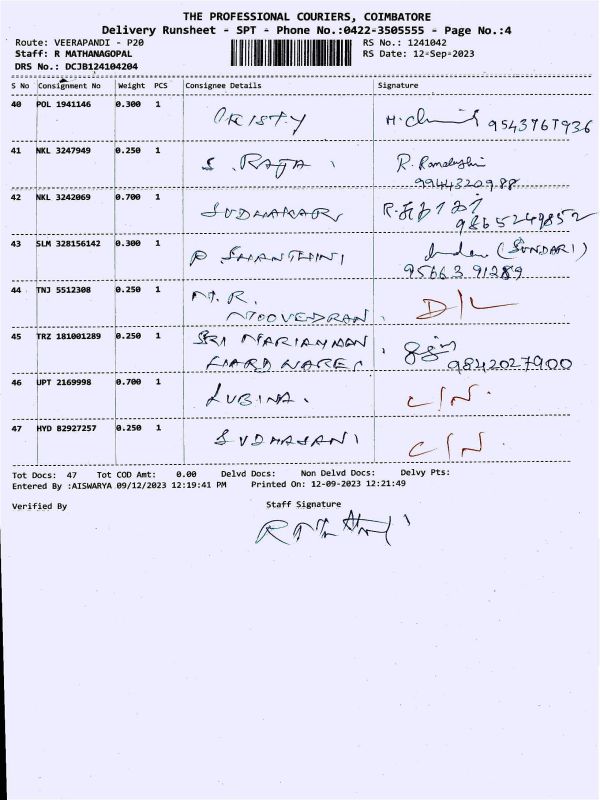 THE PROFESSIONAL COURIERS, COIMBATORE
Delivery Runsheet - SPT - Phone No.:0422-3505555 - Page No.:4
Route: VEERAPANDI - P20 RS No.: 1241042
Staff: R MATHANAGOPAL RS Date: 12-Sep-2023
DRS No.: DCJB124104204
S No Consignment No Weight PCS Consignee Details Signature
40 POL 1941146 0.300 1 CRISTY
41 NKL 3247949 0.250 1 S. RAJA R.
9944320988
42 NKL 3242069 0.700 1 SUDHAKAR
9865249852
43 SLM 328156142 0.300 1 P SHANTHINI (SUNDARI)
9566391289
44 TNJ 5512308 0.250 1 M.R. D/L
45 TRZ 181001289 0.250 1 SRI MARIAMMAN
HARDWARES 9842027900
46 UPT 2169998 0.700 1 LUBINA. C/N.
47 HYD 82927257 0.250 1 SUDHASANI C/N.
Tot Docs: 47 Tot COD Amt: 0.00 Delvd Docs: Non Delvd Docs: Delvy Pts:
Entered By :AISWARYA 09/12/2023 12:19:41 PM Printed On: 12-09-2023 12:21:49
Verified By Staff Signature